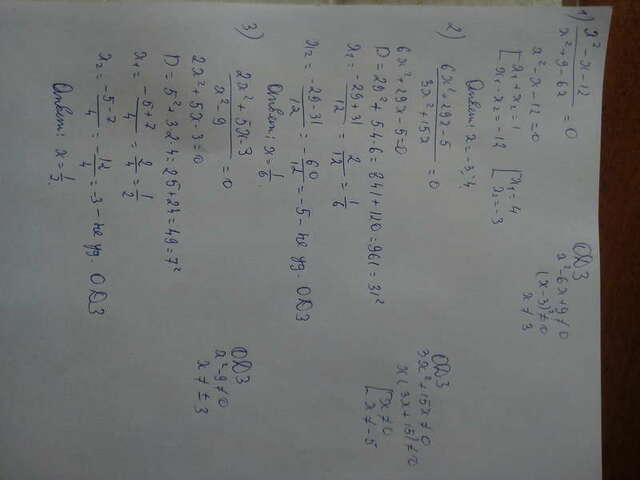 1) (x² - x - 12)/(x² + 9 - 6x) = 0
ОДЗ
x² - 6x + 9 ≠ 0
(x - 3)² ≠ 0
x ≠ 3
x² - x - 12 = 0
[x₁ + x₂ = 1 [x₁ = 4
x₁ - x₂ = -12 x₂ = -3
Ответ: x = -3; 4.
2) (6x² + 29x - 5)/(3x² + 15x) = 0
ОДЗ
3x² + 15x ≠ 0
x(3x + 15) ≠ 0
[x ≠ 0
x ≠ -5
6x² + 29x - 5 = 0
D = 29² + 5·4·6 = 841 + 120 = 961 = 31²
x₁ = (-29 + 31)/12 = 2/12 = 1/6
x₂ = (-29 - 31)/12 = -60/12 = -5 - не уд. ОДЗ
Ответ: x = 1/6.
3) (2x² + 5x - 3)/(x² - 9) = 0
ОДЗ
x² - 9 ≠ 0
x ≠ ± 3
2x² + 5x - 3 = 0
D = 5² + 3·2·4 = 25 + 24 = 49 = 7²
x₁ = (-5 + 7)/4 = 2/4 = 1/2
x₂ = (-5 - 7)/4 = -12/4 = -3 - не уд. ОДЗ
Ответ: x = 1/2.